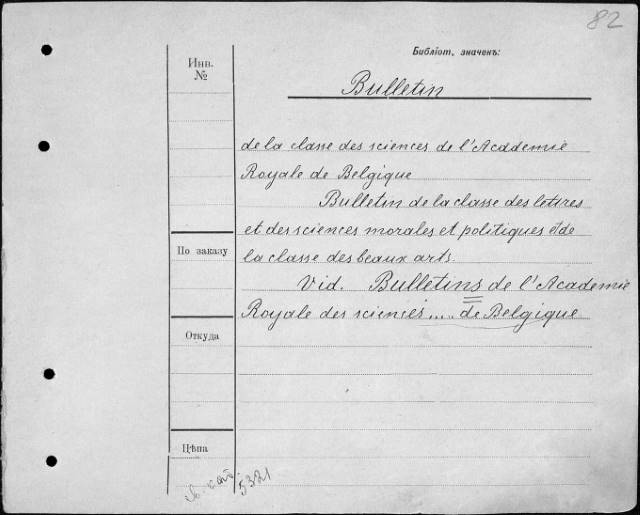 82
Библіот. значенъ:
Инв.
№
Bulletin
de la classe des sciences de l'Academie
Royale de Belgique
Bulletin de la classe des lettres
et des sciences morales et politiques et de
la classe des beaux arts.
Vid. Bulletins de l'Academie
Royale des sciences .... de Belgique
По заказу
Откуда
Цѣна
5321